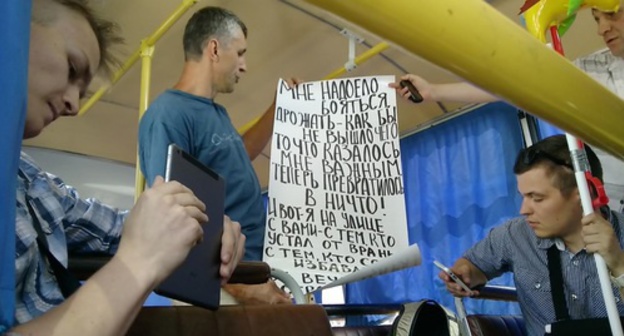 МНЕ НАДОЕЛО
БОЯТЬСЯ,
ДРОЖАТЬ-КАК БЫ
НЕ ВЫШЛО ЧТО
ТО ЧТО КАЗАЛОСЬ
МНЕ ВАЖНЫМ
ТЕПЕРЬ ПРЕВРАТИЛОСЬ
В НИЧТО!
И ВОТ-Я НА УЛИЦЕ
С ВАМИ-С ТЕМ, КТО
УСТАЛ ОТ ВРАН
С ТЕМ, КТО
ИЗБАВЛ